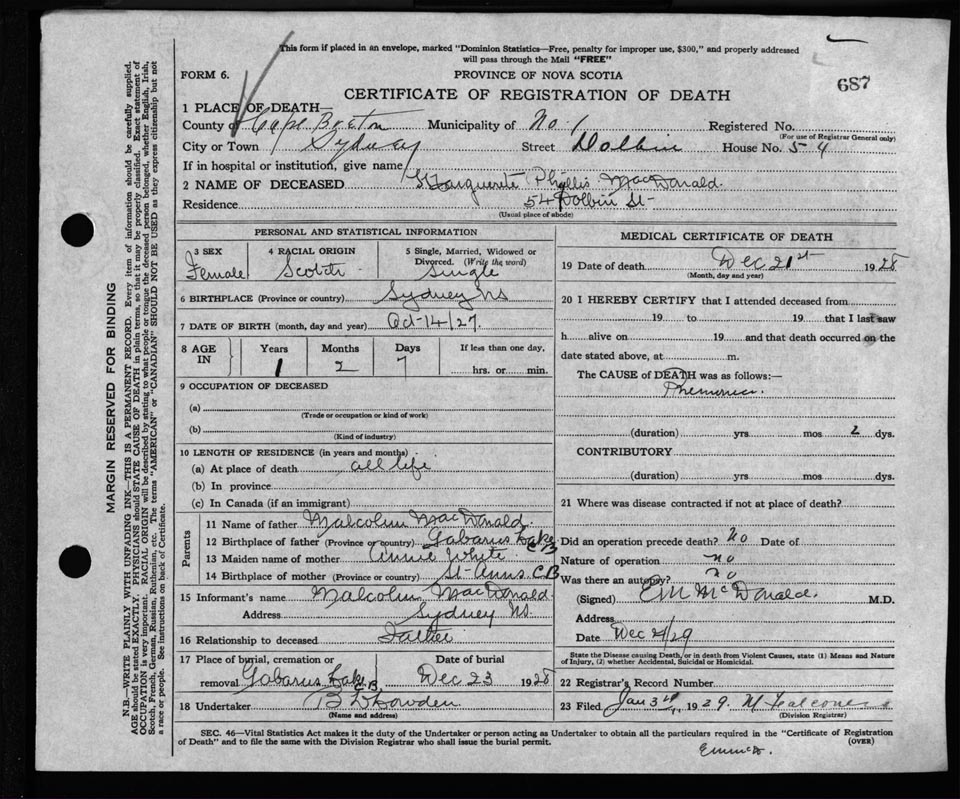 This form if placed in an envelope, marked "Dominion Statistics—Free, penalty for improper use, $300," and properly addressed
will pass through the Mail "FREE"
FORM 6.
PROVINCE OF NOVA SCOTIA
687
CERTIFICATE OF REGISTRATION OF DEATH
1 PLACE OF DEATH—
County of Cape Breton Municipality of No 1 Registered No.
(For use of Registrar General only)
City or Town Sydney Street Dolbin House No. 54
If in hospital or institution, give name
2 NAME OF DECEASED Marguerite Phyllis MacDonald
Residence 54 Dolbin St-
(Usual place of abode)
PERSONAL AND STATISTICAL INFORMATION
3 SEX Female
4 RACIAL ORIGIN Scotch
5 Single, Married, Widowed or Divorced. (Write the word) Single
6 BIRTHPLACE (Province or country) Sydney NS
7 DATE OF BIRTH (month, day and year) Oct-14/27.
8 AGE IN Years 1 Months 2 Days 7 If less than one day, hrs. or min.
9 OCCUPATION OF DECEASED
(a)
(Trade or occupation or kind of work)
(b)
(Kind of industry)
10 LENGTH OF RESIDENCE (in years and months)
(a) At place of death all life
(b) In province
(c) In Canada (if an immigrant)
Parents
11 Name of father Malcolm MacDonald
12 Birthplace of father (Province or country) Gabarus Lake CB
13 Maiden name of mother Annie White
14 Birthplace of mother (Province or country) St-Anns CB
15 Informant's name Malcolm MacDonald
Address Sydney NS.
16 Relationship to deceased Father
17 Place of burial, cremation or removal Gabarus Lake C.B.
Date of burial Dec 23 1928
18 Undertaker
(Name and address)
MEDICAL CERTIFICATE OF DEATH
19 Date of death Dec 21st 1928
(Month, day and year)
20 I HEREBY CERTIFY that I attended deceased from
19 to 19 that I last saw
h alive on 19 and that death occurred on the
date stated above, at m.
The CAUSE of DEATH was as follows:—
Pnemonia.
(duration) yrs mos 2 dys.
CONTRIBUTORY
(duration) yrs mos dys.
21 Where was disease contracted if not at place of death?
Did an operation precede death? No Date of
Nature of operation no
Was there an autopsy? no
(Signed) M McDonald. M.D.
Address
Date Dec 21/29
State the Disease causing Death, or in death from Violent Causes, state (1) Means and Nature
of Injury, (2) whether Accidental, Suicidal or Homicidal.
22 Registrar's Record Number
23 Filed Jan 3rd 1929.
(Division Registrar)
SEC. 46—Vital Statistics Act makes it the duty of the Undertaker or person acting as Undertaker to obtain all the particulars required in the "Certificate of Registration
of Death" and to file the same with the Division Registrar who shall issue the burial permit.
(OVER)
MARGIN RESERVED FOR BINDING
N.B.—WRITE PLAINLY WITH UNFADING INK—THIS IS A PERMANENT RECORD. Every item of information should be carefully supplied.
AGE should be stated EXACTLY. PHYSICIANS should STATE CAUSE OF DEATH in plain terms, so that it may be properly classified. Exact statement of
OCCUPATION is very important. RACIAL ORIGIN will be described by stating to what people or tongue the deceased person belonged, whether English, Irish,
Scotch, French, German, Russian, Ruthenian, etc. The terms "AMERICAN" or "CANADIAN" SHOULD NOT BE USED as they express citizenship but not
a race or people. See instructions on back of Certificate.